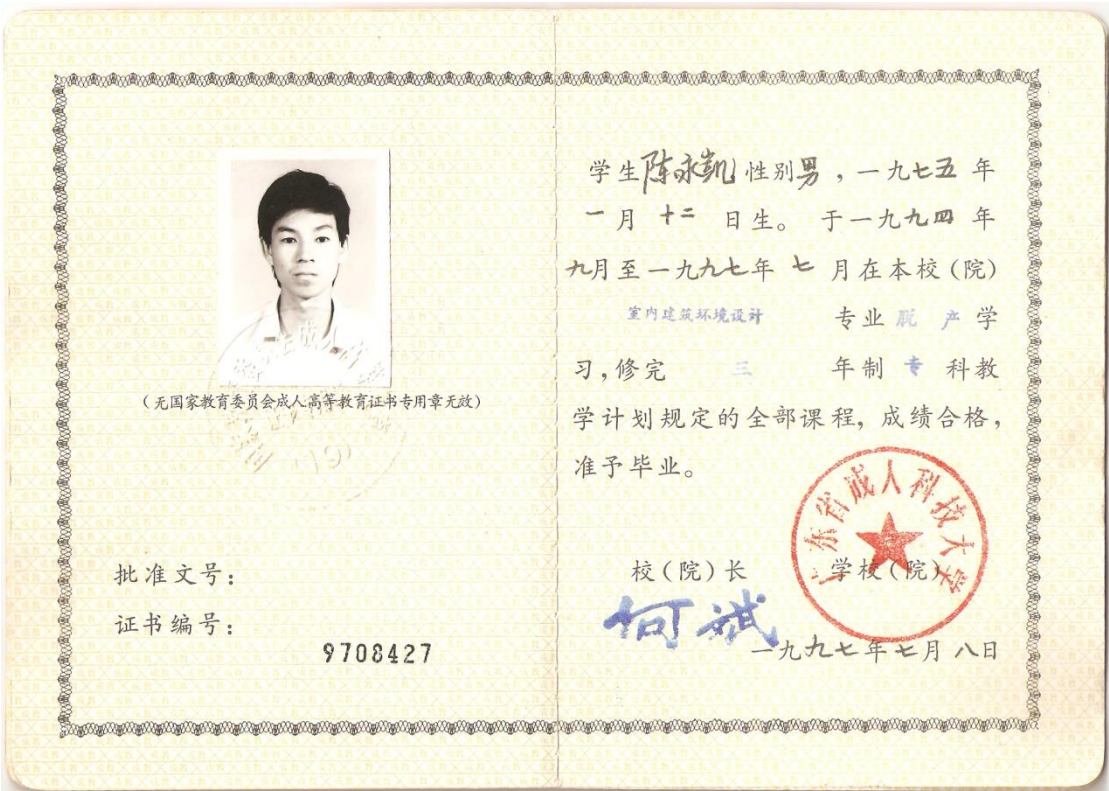 (无国家教育委员会成人高等教育证书专用章无效)
批准文号:
证书编号:
9708427
学生陈永凯性别男,一九七五年
一月十二日生。于一九九四年
九月至一九九七年七月在本校(院)
室内建筑环境设计 专业脱产学
习,修完三年制专科教
学计划规定的全部课程,成绩合格,
准予毕业。
广东省成人科技大学
校(院)长 学校(院)
何斌
一九九七年七月八日